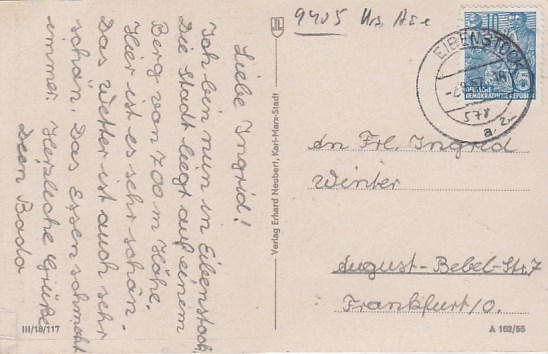 Liebe Ingrid!
Ich bin nun in Eibenstock.
Die Stadt liegt auf einem
Berg von 700 m Höhe.
Hier ist es sehr schön.
Das Wetter ist auch sehr
schön. Das Essen schmeckt
immer. Herzliche Grüße
Dein
Verlag Erhard Neubert, Karl-Marx-Stadt
III/18/117
9405
EIBENSTOCK
a
DEUTSCHE
DEMOKRATISCHE REPUBLIK
5
An Frl. Ingrid
Winter
August-Bebel-Str. 7
Frankfurt/O.
A 162/55